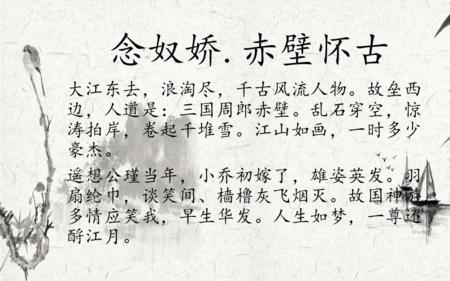 念奴娇.赤壁怀古
大江东去，浪淘尽，千古风流人物。故垒西
边，人道是：三国周郎赤壁。乱石穿空，惊
涛拍岸，卷起千堆雪。江山如画，一时多少
豪杰。
遥想公瑾当年，小乔初嫁了，雄姿英发。羽
扇纶巾，谈笑间、樯橹灰飞烟灭。故国神游
多情应笑我，早生华发。人生如梦，一尊还
酹江月。